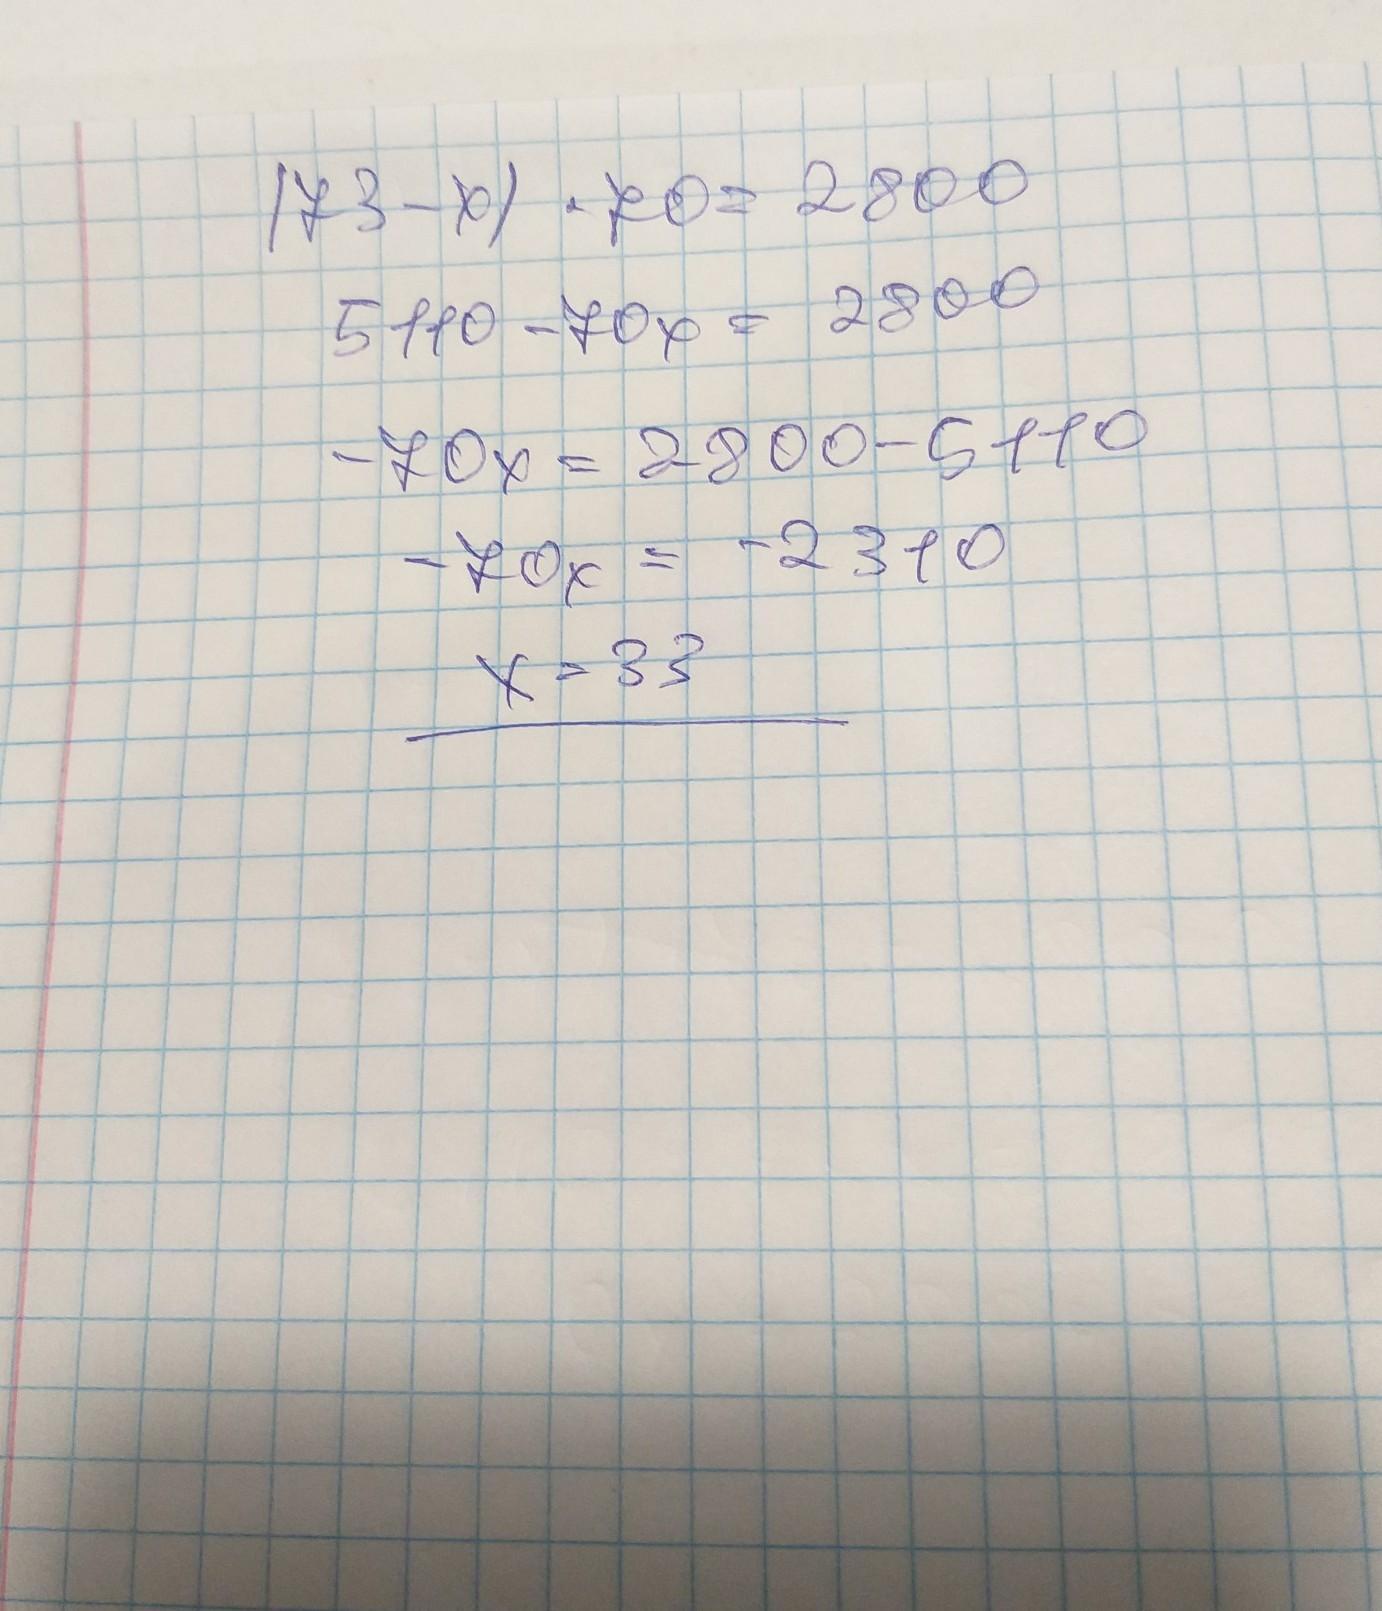 |73-x| · 70 = 2800
5110 - 70x = 2800
-70x = 2800 - 5110
-70x = -2310
x = 33